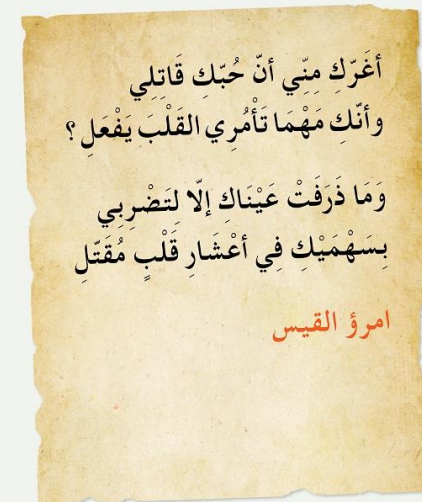 أغَرّكِ مِنّي أنّ حُبّكِ قَاتِلِي
وأنّكِ مَهْمَا تَأْمُرِي القَلْبَ يَفْعَلِ ؟
وَمَا ذَرَفَتْ عَيْنَاكِ إلّا لِتَضْرِبِي
بِسَهْمَيْكِ فِي أعْشَارِ قَلْبٍ مُقَتّلِ
امرؤ القيس